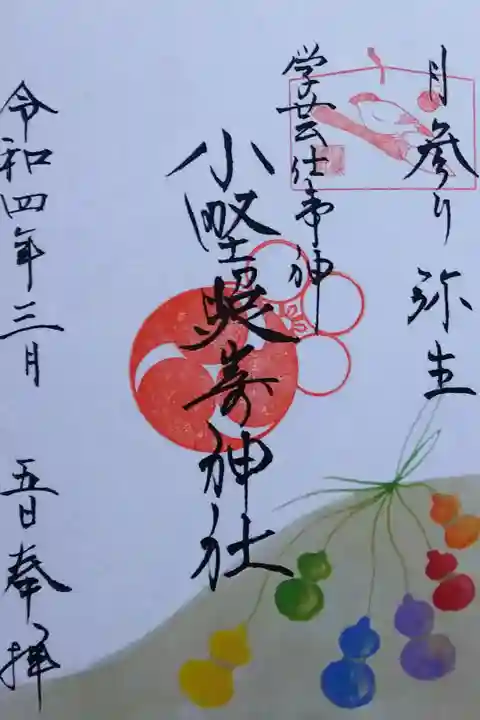 月参り 弥生
学芸仕事神
小野照崎神社
令和四年三月 五日奉拝